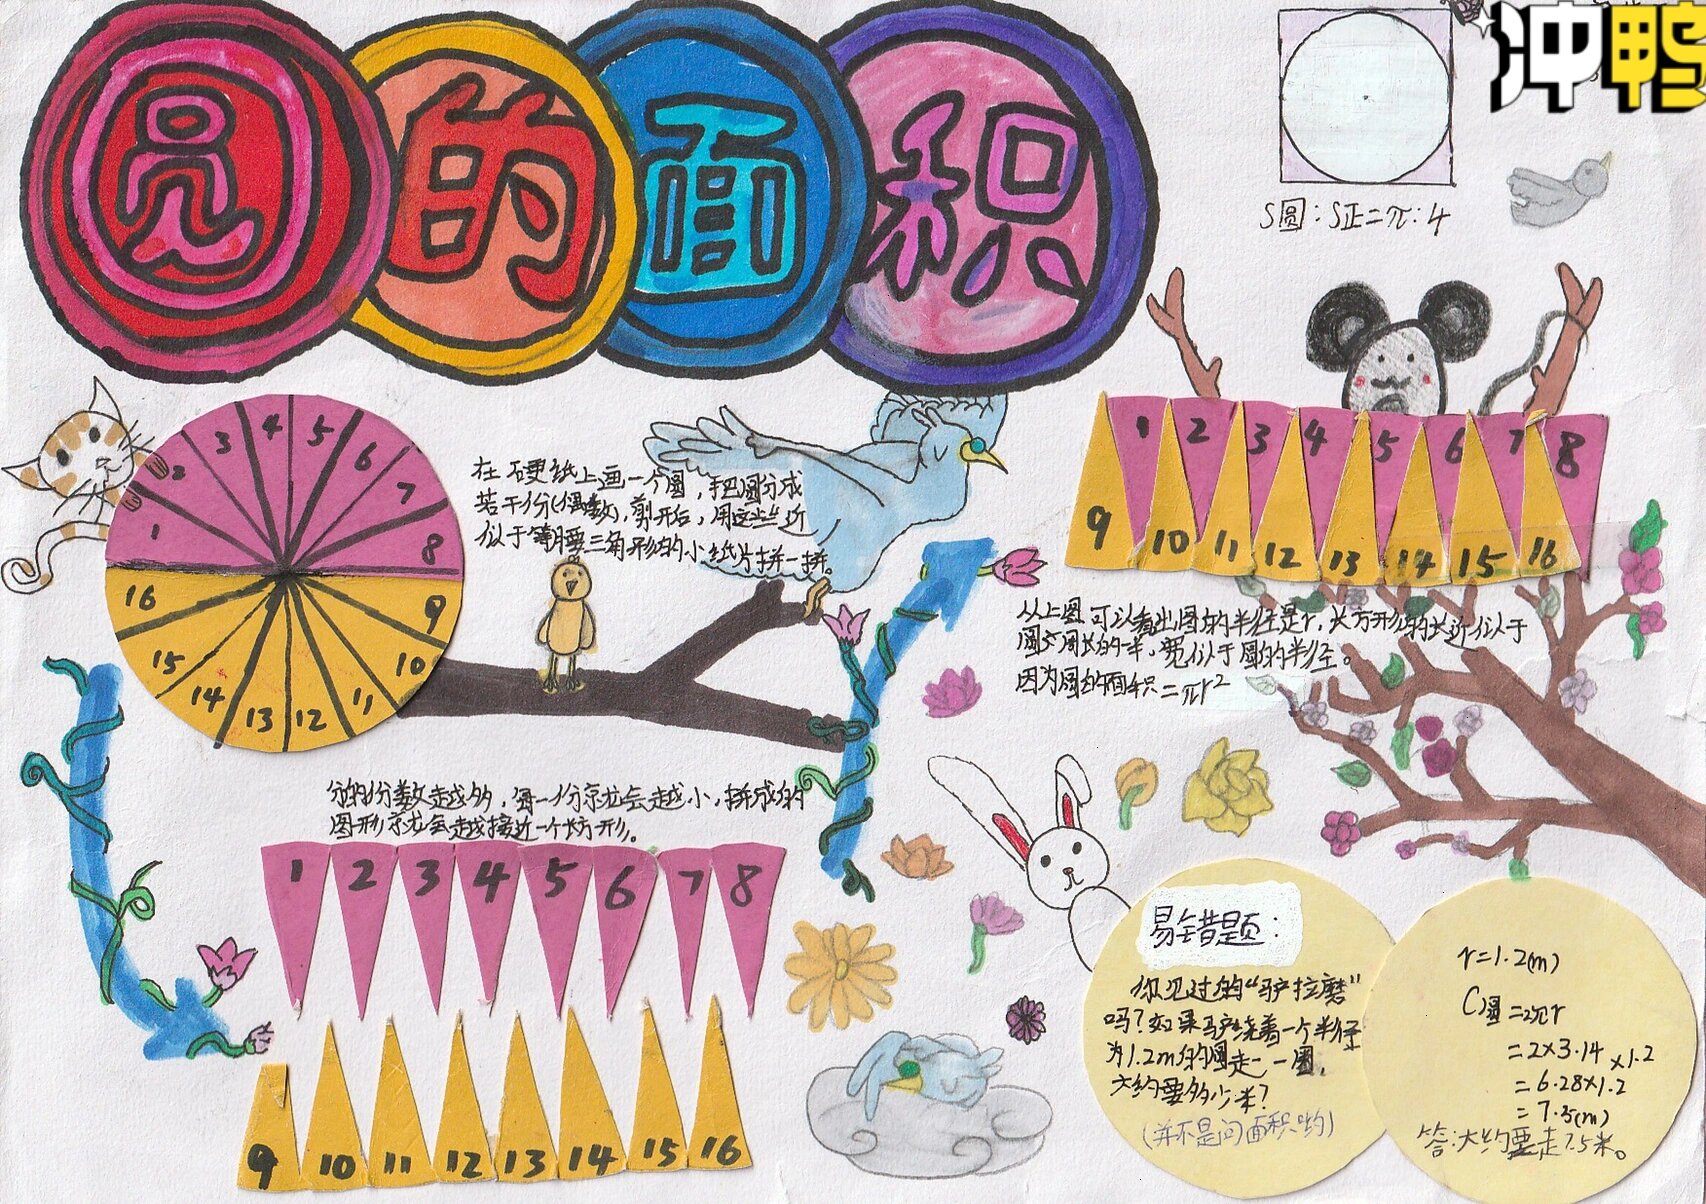 圆的面积
冲鸭
S圆:S正=π:4
1 2 3 4 5 6 7 8
9 10 11 12 13 14 15 16
在硬纸上画一个圆，把圆分成
若干份(偶数)，剪开后，用这些近
似于等腰三角形的小纸片拼一拼。
1 2 3 4 5 6 7 8
9 10 11 12 13 14 15 16
从上图可以看出圆的半径是r，长方形的长近似于
圆周长的一半，宽似于圆的半径。
因为圆的面积=πr²
分的份数越多，每一份就会越小，拼成的
图形就会越接近一个长方形。
1 2 3 4 5 6 7 8
9 10 11 12 13 14 15 16
易错题：
你见过的“驴拉磨”
吗？如果驴绕着一个半径
为1.2m的圆走一圈，
大约要多少米？
(并不是问面积哟)
r=1.2(m)
C圆=2πr
=2×3.14×1.2
=6.28×1.2
=7.5(m)
答：大约要走7.5米。